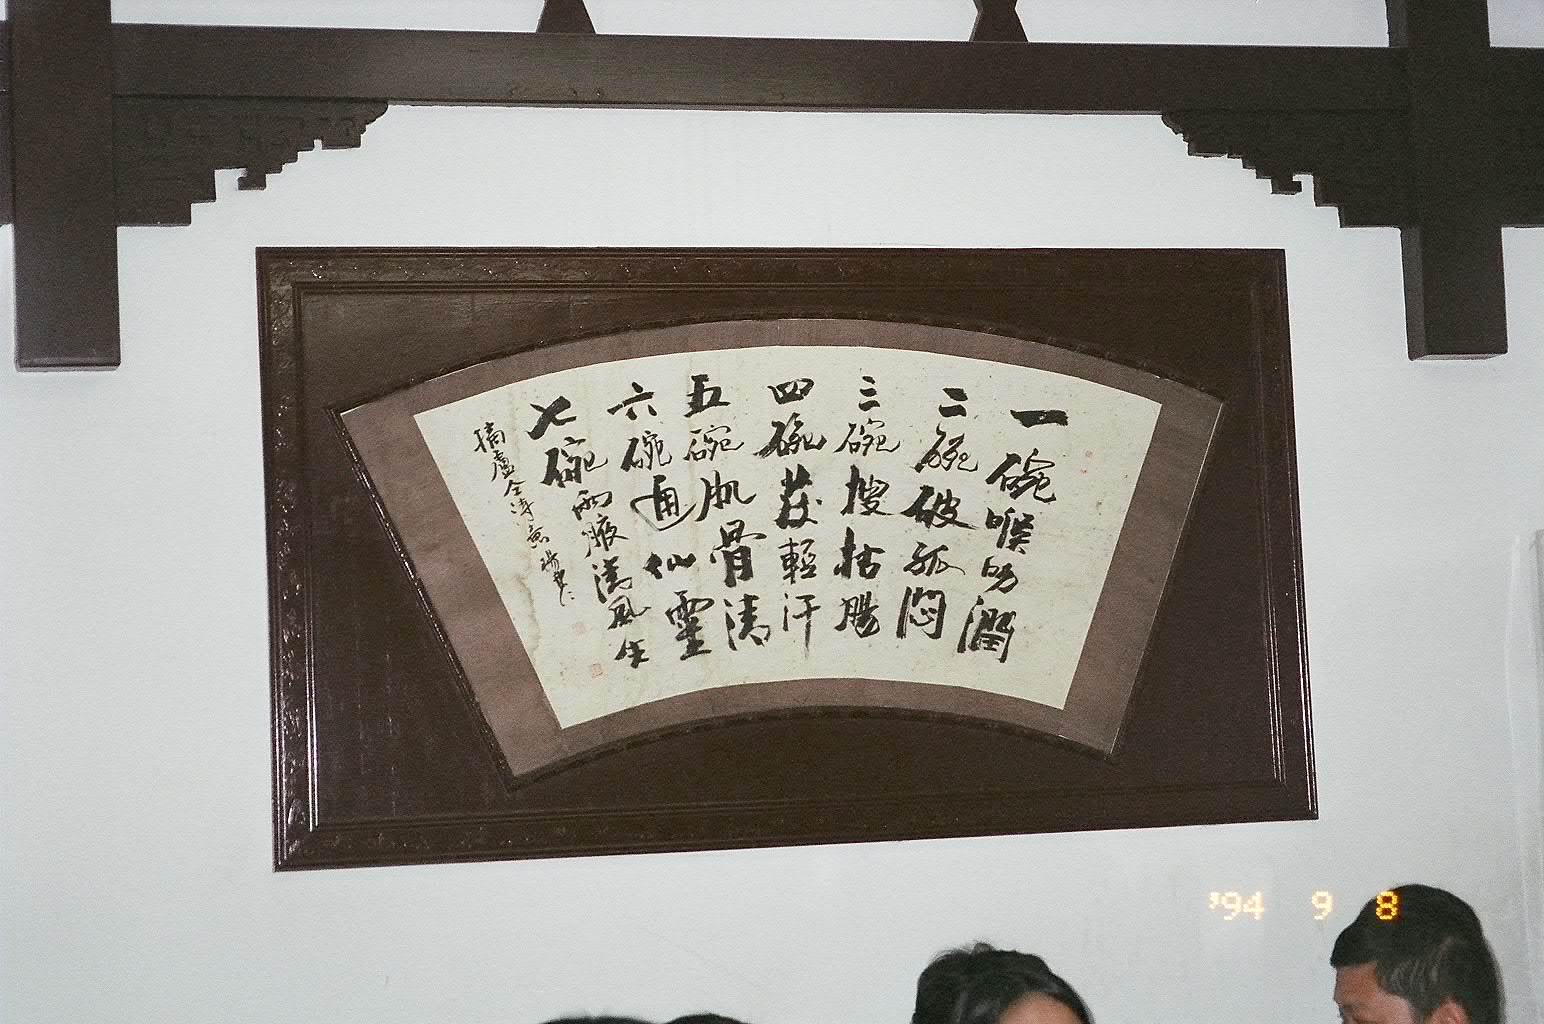 一碗喉吻潤
二碗破孤悶
三碗搜枯腸
四碗發輕汗
五碗肌骨清
六碗通仙靈
七碗兩腋清風生
摘盧仝詩意
'94 9 8